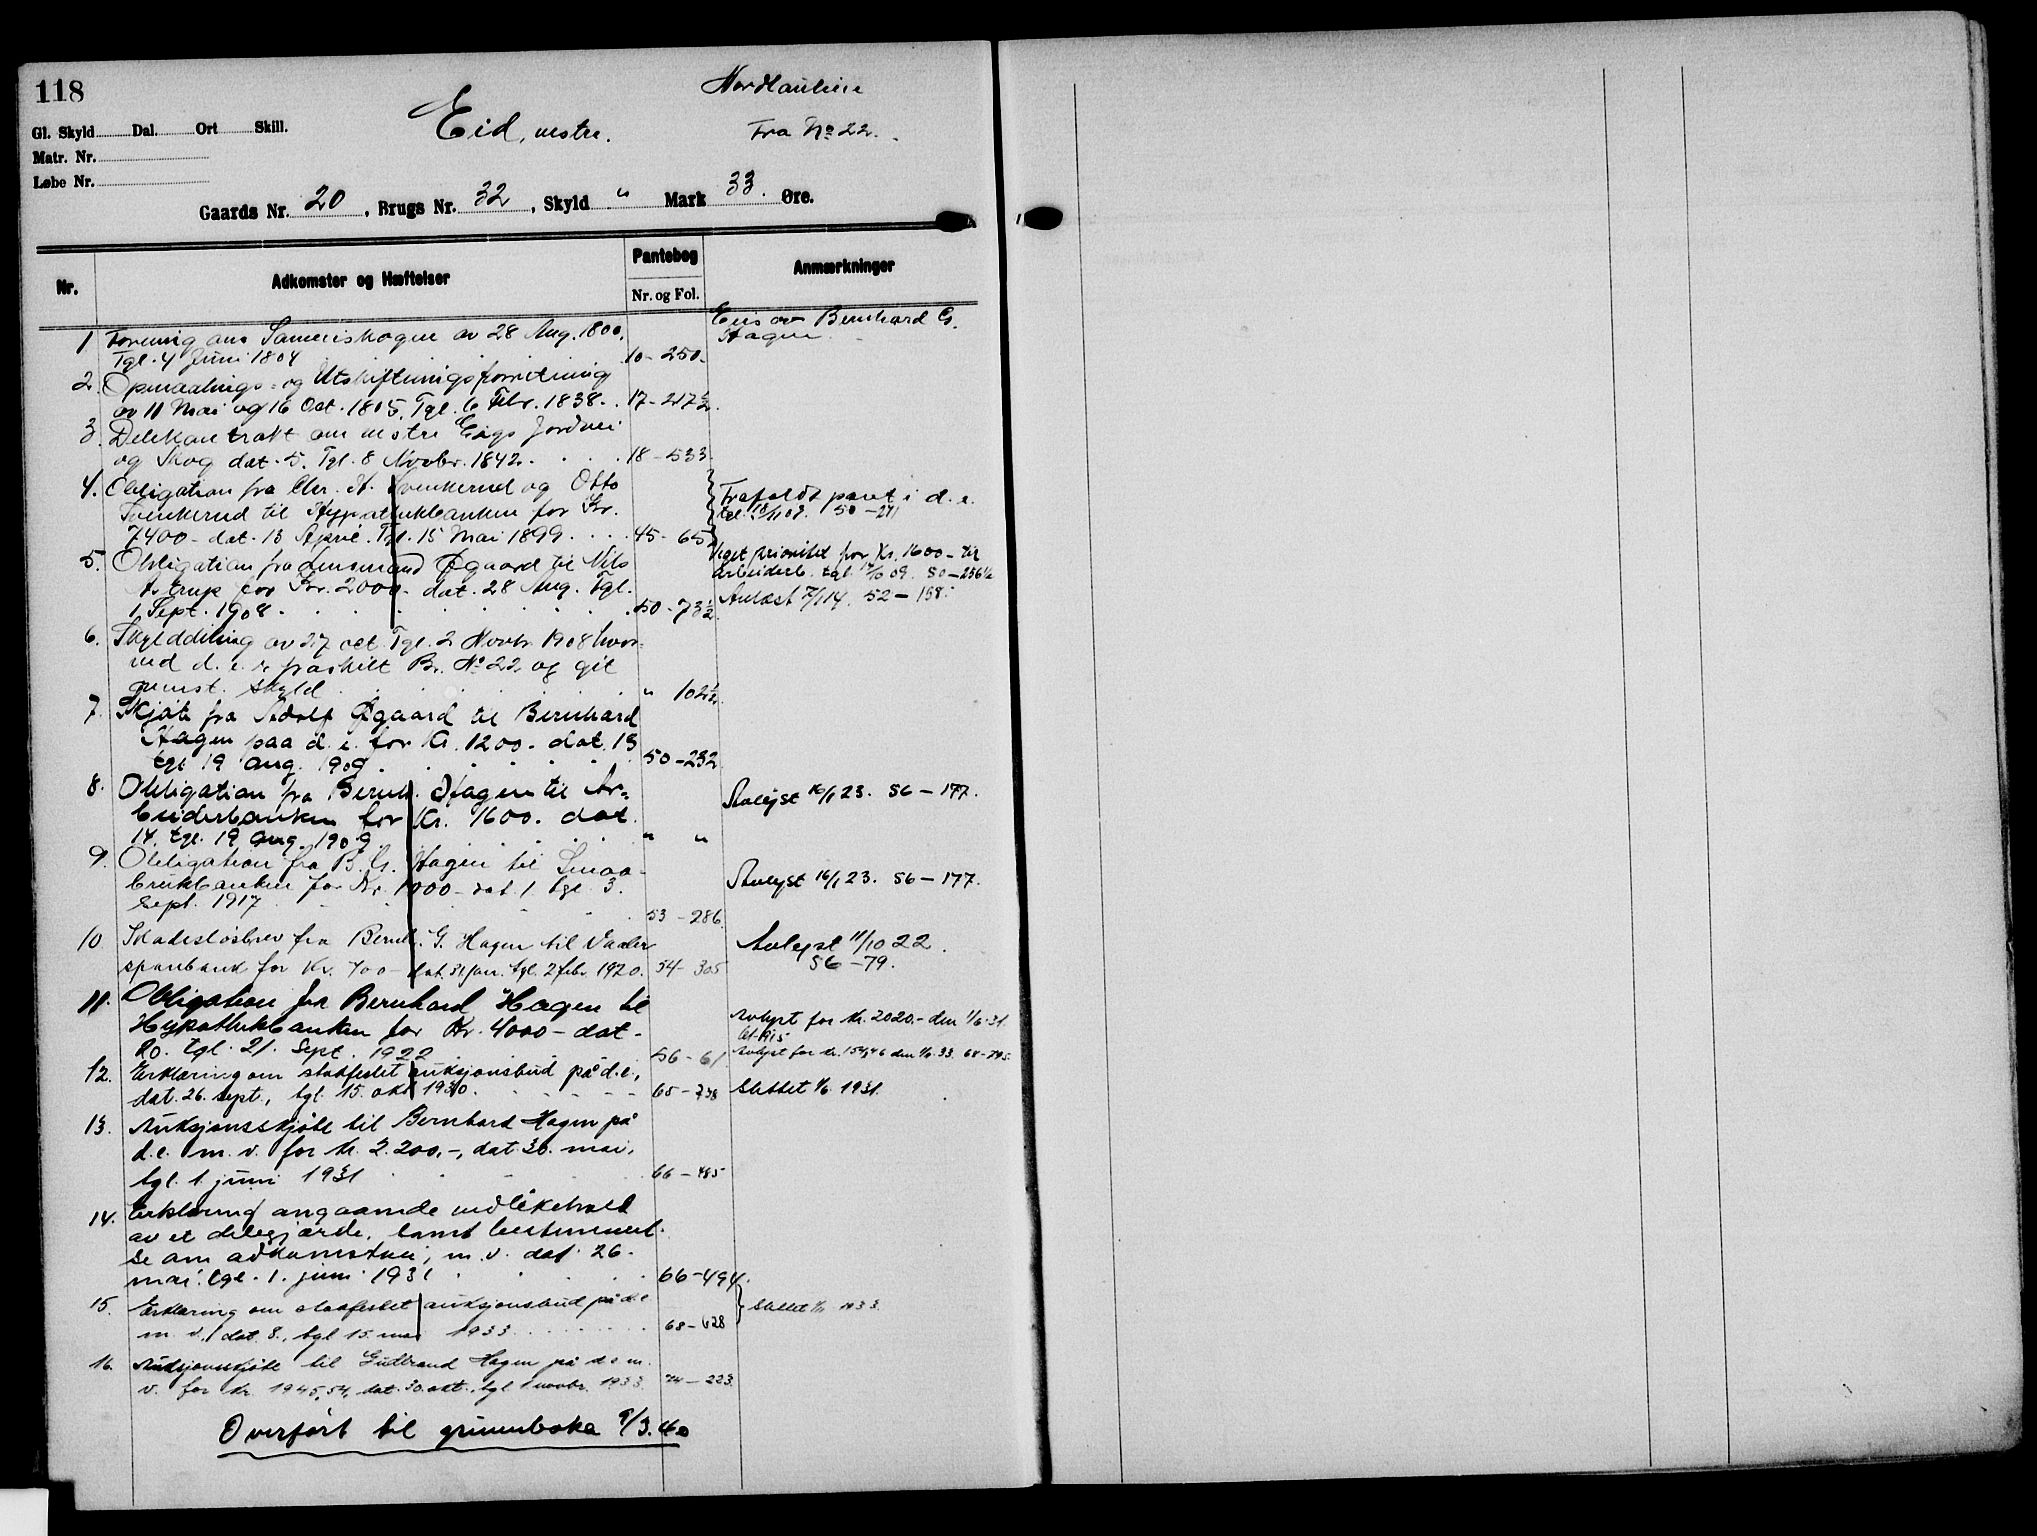 118
Gl. Skyld Dal. Ort Skill.
Matr. Nr.
Løbe Nr.
Eid, vestre.
Fra No 22.
Gaards Nr. 20, Brugs Nr. 32, Skyld " Mark 33. Øre.
Nr. Adkomster og Hæftelser Pantebog Nr. og Fol. Anmærkninger
Eies av Bernhard G. Hagen.
1 Forening om Sameieskogene av 28 Aug. 1800.
Tgl. 4 Juni 1804 10-250.
2. Opmaalings- og Utskiftningsforretning
av 11 Mai og 16 Oct. 1805. Tgl. 6 Febr. 1838. 17-217½.
3. Delekontrakt om vestre Eigs Jordvei
og Skog dat. 5. Tgl. 8 Novbr. 1842. 18-533.
4. Obligation fra Chr. H. Svenkerud og Otto
Svenkerud til Hypothekbanken for Kr.
7400- dat. 13 April. Tgl. 15 Mai 1899 45-65
Frafaldt pant i d. e.
50-241
5. Obligation fra Lensmand Øgaard til Nils
Astrup for Kr. 2000- dat. 28 Aug. Tgl.
1 Sept. 1908. 50-73½
Veget prioritet for Kr. 1600- til
Arbeiderb. tgl. 19/8 09. 50-236½
Avlæst 7/1 14. 52-158.
6. Skylddeling av 27 oct Tgl. 2 Novbr. 1908 hvor-
ved d. e. er fraskilt Br. No 22 og git
ovenst. skyld " 102½.
7. Skjøte fra Adolf Øgaard til Bernhard
Hagen paa d. e. for Kr. 1200. dat. 13
tgl 19 Aug. 1909. 50-232
8. Obligation fra Bernh. Hagen til Ar-
beiderbanken for Kr. 1600. dat.
14. tgl. 19 Aug. 1909. " "
Avlyst 16/1 23. 56-177.
9. Obligation fra B. G. Hagen til Smaa-
brukbanken for Kr. 1000- dat. 1. tgl. 3.
Sept. 1917 53-286.
Avlyst 16/1 23. 56-177.
10. Skadesløsbrev fra Bernh. G. Hagen til Vaaler
sparebank for Kr. 700- dat. 31. jan. tgl. 2 febr. 1920. 54-305
Avlyst 11/10 22.
56-79.
11. Obligation fra Bernhard Hagen til
Hypothekbanken for Kr. 4000- dat.
20. tgl. 21. Sept. 1922 56-61
Avlyst for kr. 2020.- den 1/6.31
12. Erklæring om stadfestet auksjonsbud på d.e.,
dat. 26. sept., tgl. 15. okt 1930. 65-738
Slettet 1/6. 1931.
13. Auksjonsskjøte til Bernhard Hagen på
d.e. m. v. for kr. 2.200,-, dat. 30. mai,
tgl. 1. juni 1931 66-485
14. Erklæring angaaende vedlikehold
av et delegjærde, samt bestemmel-
se om adkomstvei, m. v. dat. 26.
mai. tgl. 1. juni 1931 66-494.
15. Erklæring om stadfestet auksjonsbud på d.e
m. v., dat. 8., tgl 15. mai 1933 68-628
Slettet 1/11 1933.
16. Auksjonsskjøte til Gudbrand Hagen på d e m.
v. for kr. 1945,54, dat. 30. okt., tgl 1 novbr. 1933. 223.
Overført til grunnboka 9/3.40